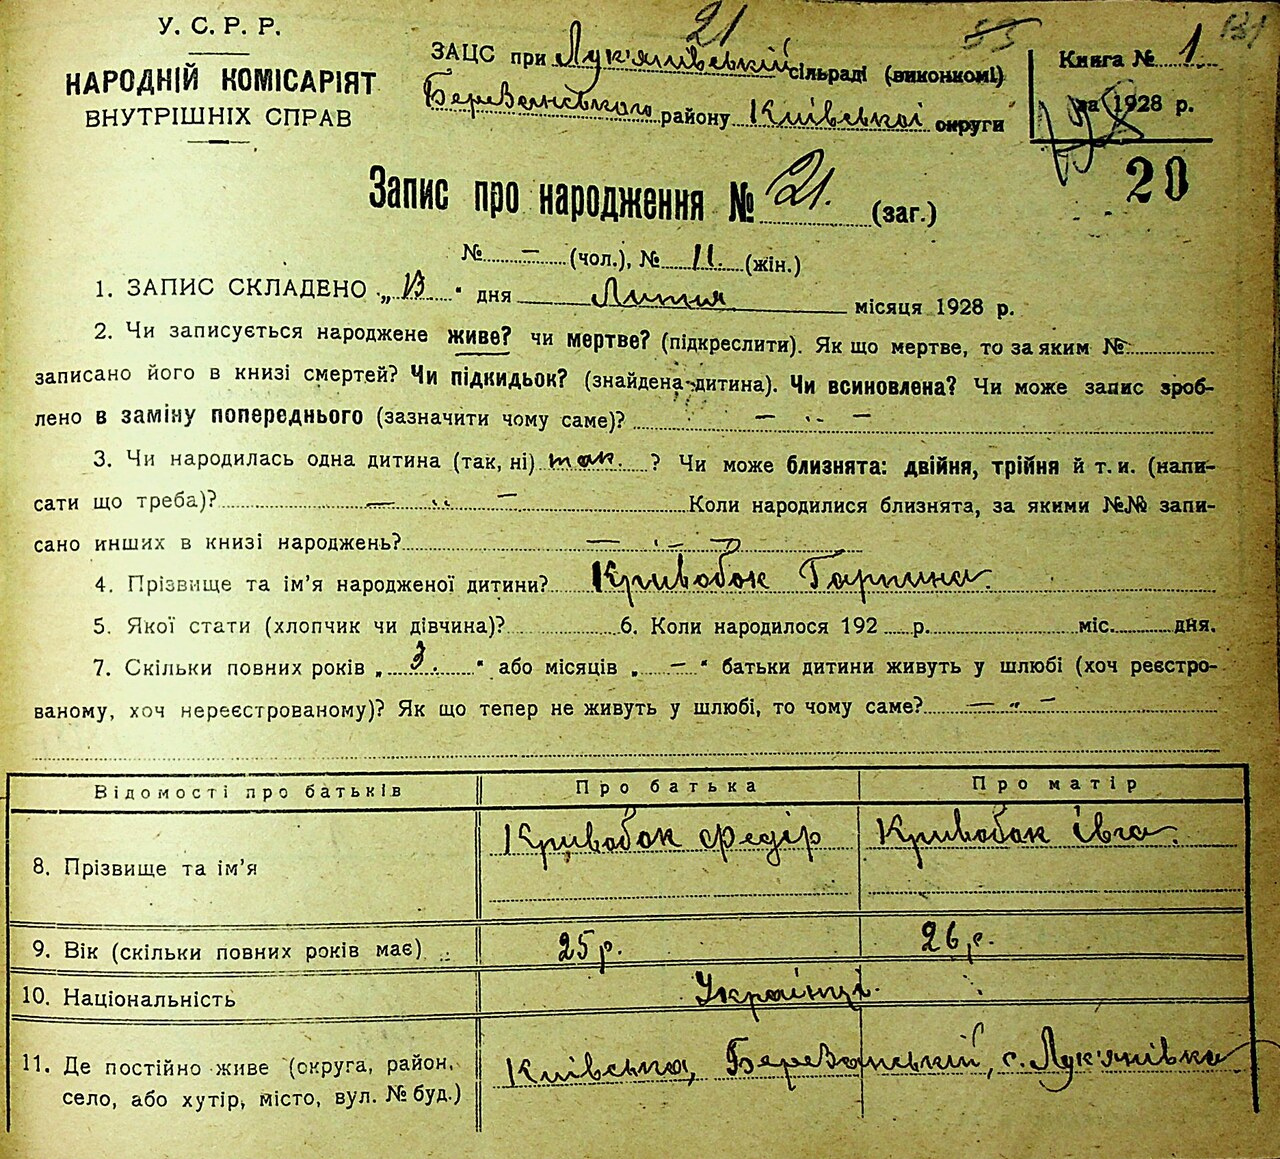 У. С. Р. Р.
НАРОДНІЙ КОМІСАРІЯТ
ВНУТРІШНІХ СПРАВ
21
ЗАЦС при Лук'янівській сільраді (виконкомі)
Березанського району Київської округи
53
131
Книга № 1
за 1928 р.
20
Запис про народження № 21. (заг.)
№ – (чол.), № 11. (жін.)
1. ЗАПИС СКЛАДЕНО „13" дня Липня місяця 1928 р.
2. Чи записується народжене живе? чи мертве? (підкреслити). Як що мертве, то за яким №
записано його в книзі смертей? Чи підкидьок? (знайдена дитина). Чи всиновлена? Чи може запис зроб-
лено в заміну попереднього (зазначити чому саме)? — „ —
3. Чи народилась одна дитина (так, ні) так. ? Чи може близнята: двійня, трійня й т. и. (напи-
сати що треба)? — „ — Коли народилися близнята, за якими №№ запи-
сано инших в книзі народжень? — „ —
4. Прізвище та ім'я народженої дитини? Кривобок Гарпина.
5. Якої стати (хлопчик чи дівчина)? 6. Коли народилося 192 р. міс. дня.
7. Скільки повних років „3." або місяців „–" батьки дитини живуть у шлюбі (хоч реєстро-
ваному, хоч нереєстрованому)? Як що тепер не живуть у шлюбі, то чому саме? — „ —
Відомості про батьків Про батька Про матір
8. Прізвище та ім'я Кривобок Федір Кривобок Івга.
9. Вік (скільки повних років має) 25 р. 26 р.
10. Національність Українці.
11. Де постійно живе (округа, район, Київська, Березанський, с. Лук'янівка
село, або хутір, місто, вул. № буд.)